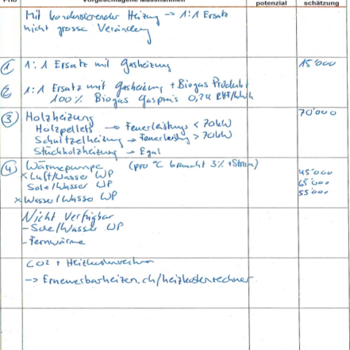 Prio Vorgeschlagene Massnahmen potenzial schätzung
Mit kondensierender Heizung → 1:1 Ersatz
nicht grosse Veränderung
① 1:1 Ersatz mit Gasheizung 15'000
② 1:1 Ersatz mit Gasheizung + Biogas Produkt
100% Biogas Gaspreis
③ Holzheizung 70'000
Holzpellets → Feuerleistung < 70kW
Schnitzelheizung → Feuerleistung > 70kW
Stückholzheizung → Egal
④ Wärmepumpe (pro °C braucht 3% + Strom)
x Luft/Wasser WP 45'000
Sole/Wasser WP 65'000
x Wasser/Wasser WP 55'000
Nicht Verfügbar
- Sole/Wasser WP
- Fernwärme
CO2 + Heizkostenrechner
→ Erneuerbarheizen.ch/heizkostenrechner